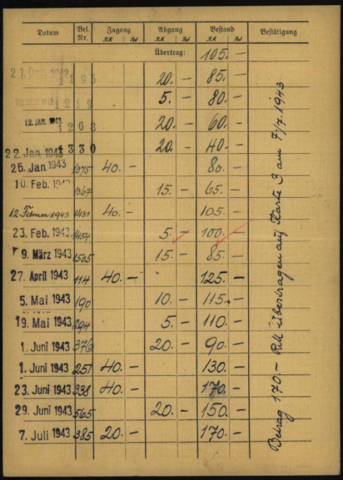 Datum Bel. Nr. Zugang RM Rpf Abgang RM Rpf Bestand RM Rpf Bestätigung
Übertrag: 105.-
1265 20.- 85.-
5.- 80.-
12. JAN. 1943 1268 20.- 60.-
22. Jan. 1943 1330 20.- 40.-
25. Jan 1943 1375 40.- 80.-
10. Feb. 1943 15.- 65.-
12 Februar 1943 1431 40.- 105.-
23. Feb. 1943 1454 5.- 100.-
9. März 1943 1505 15.- 85.-
27. April 1943 114 40.- 125.-
5. Mai 1943 190 10.- 115.-
19. Mai 1943 294 5.- 110.-
1. Juni 1943 376 20.- 90.-
1. Juni 1943 257 40.- 130.-
23. Juni 1943 338 40.- 170.-
29. Juni 1943 565 20.- 150.-
7. Juli 1943 385 20.- 170.-
Betrag 170.- RM übertragen auf Karte 3 am 7/7.1943